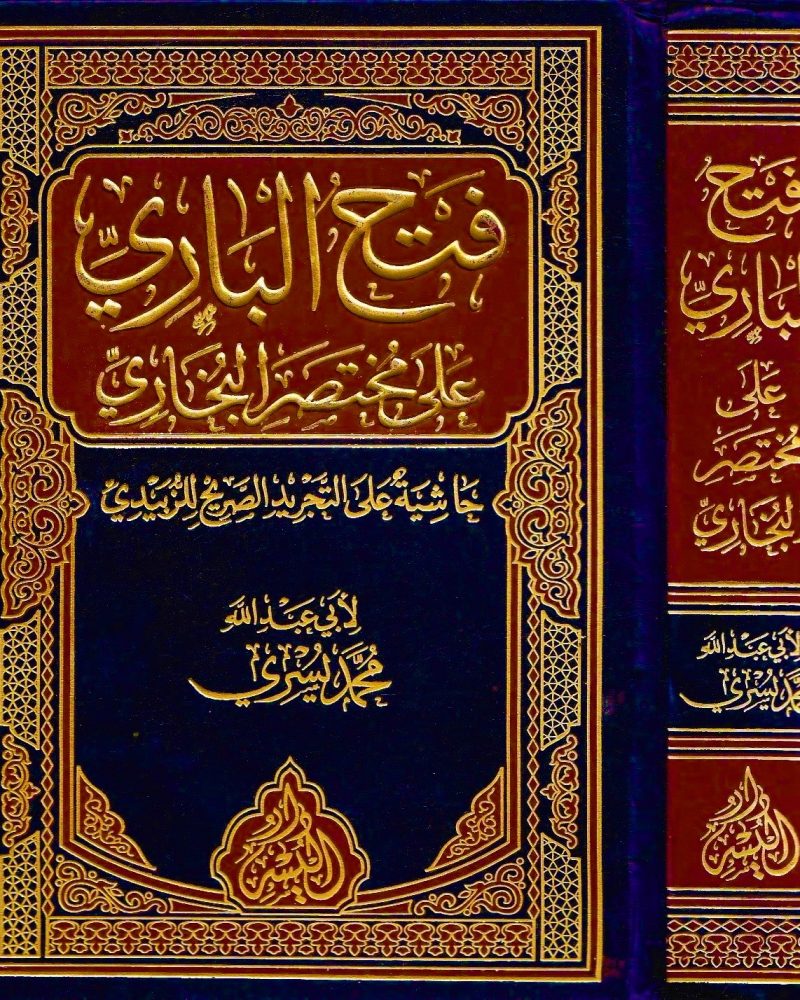 فَتْحُ البَارِيِّ
عَلَى مُخْتَصَرِ البُخَارِيِّ
حَاشِيَةٌ عَلَى التَّجْرِيدِ الصَّرِيحِ لِلزَّبِيدِيِّ
لِأَبِي عَبْدِ اللَّهِ
مُحَمَّد يُسْرِي
دار اليسر
فَتْحُ
البَارِيِّ
عَلَى
مُخْتَصَرِ
البُخَارِيِّ
لِأَبِي عَبْدِ اللَّهِ
مُحَمَّد يُسْرِي
دار اليسر